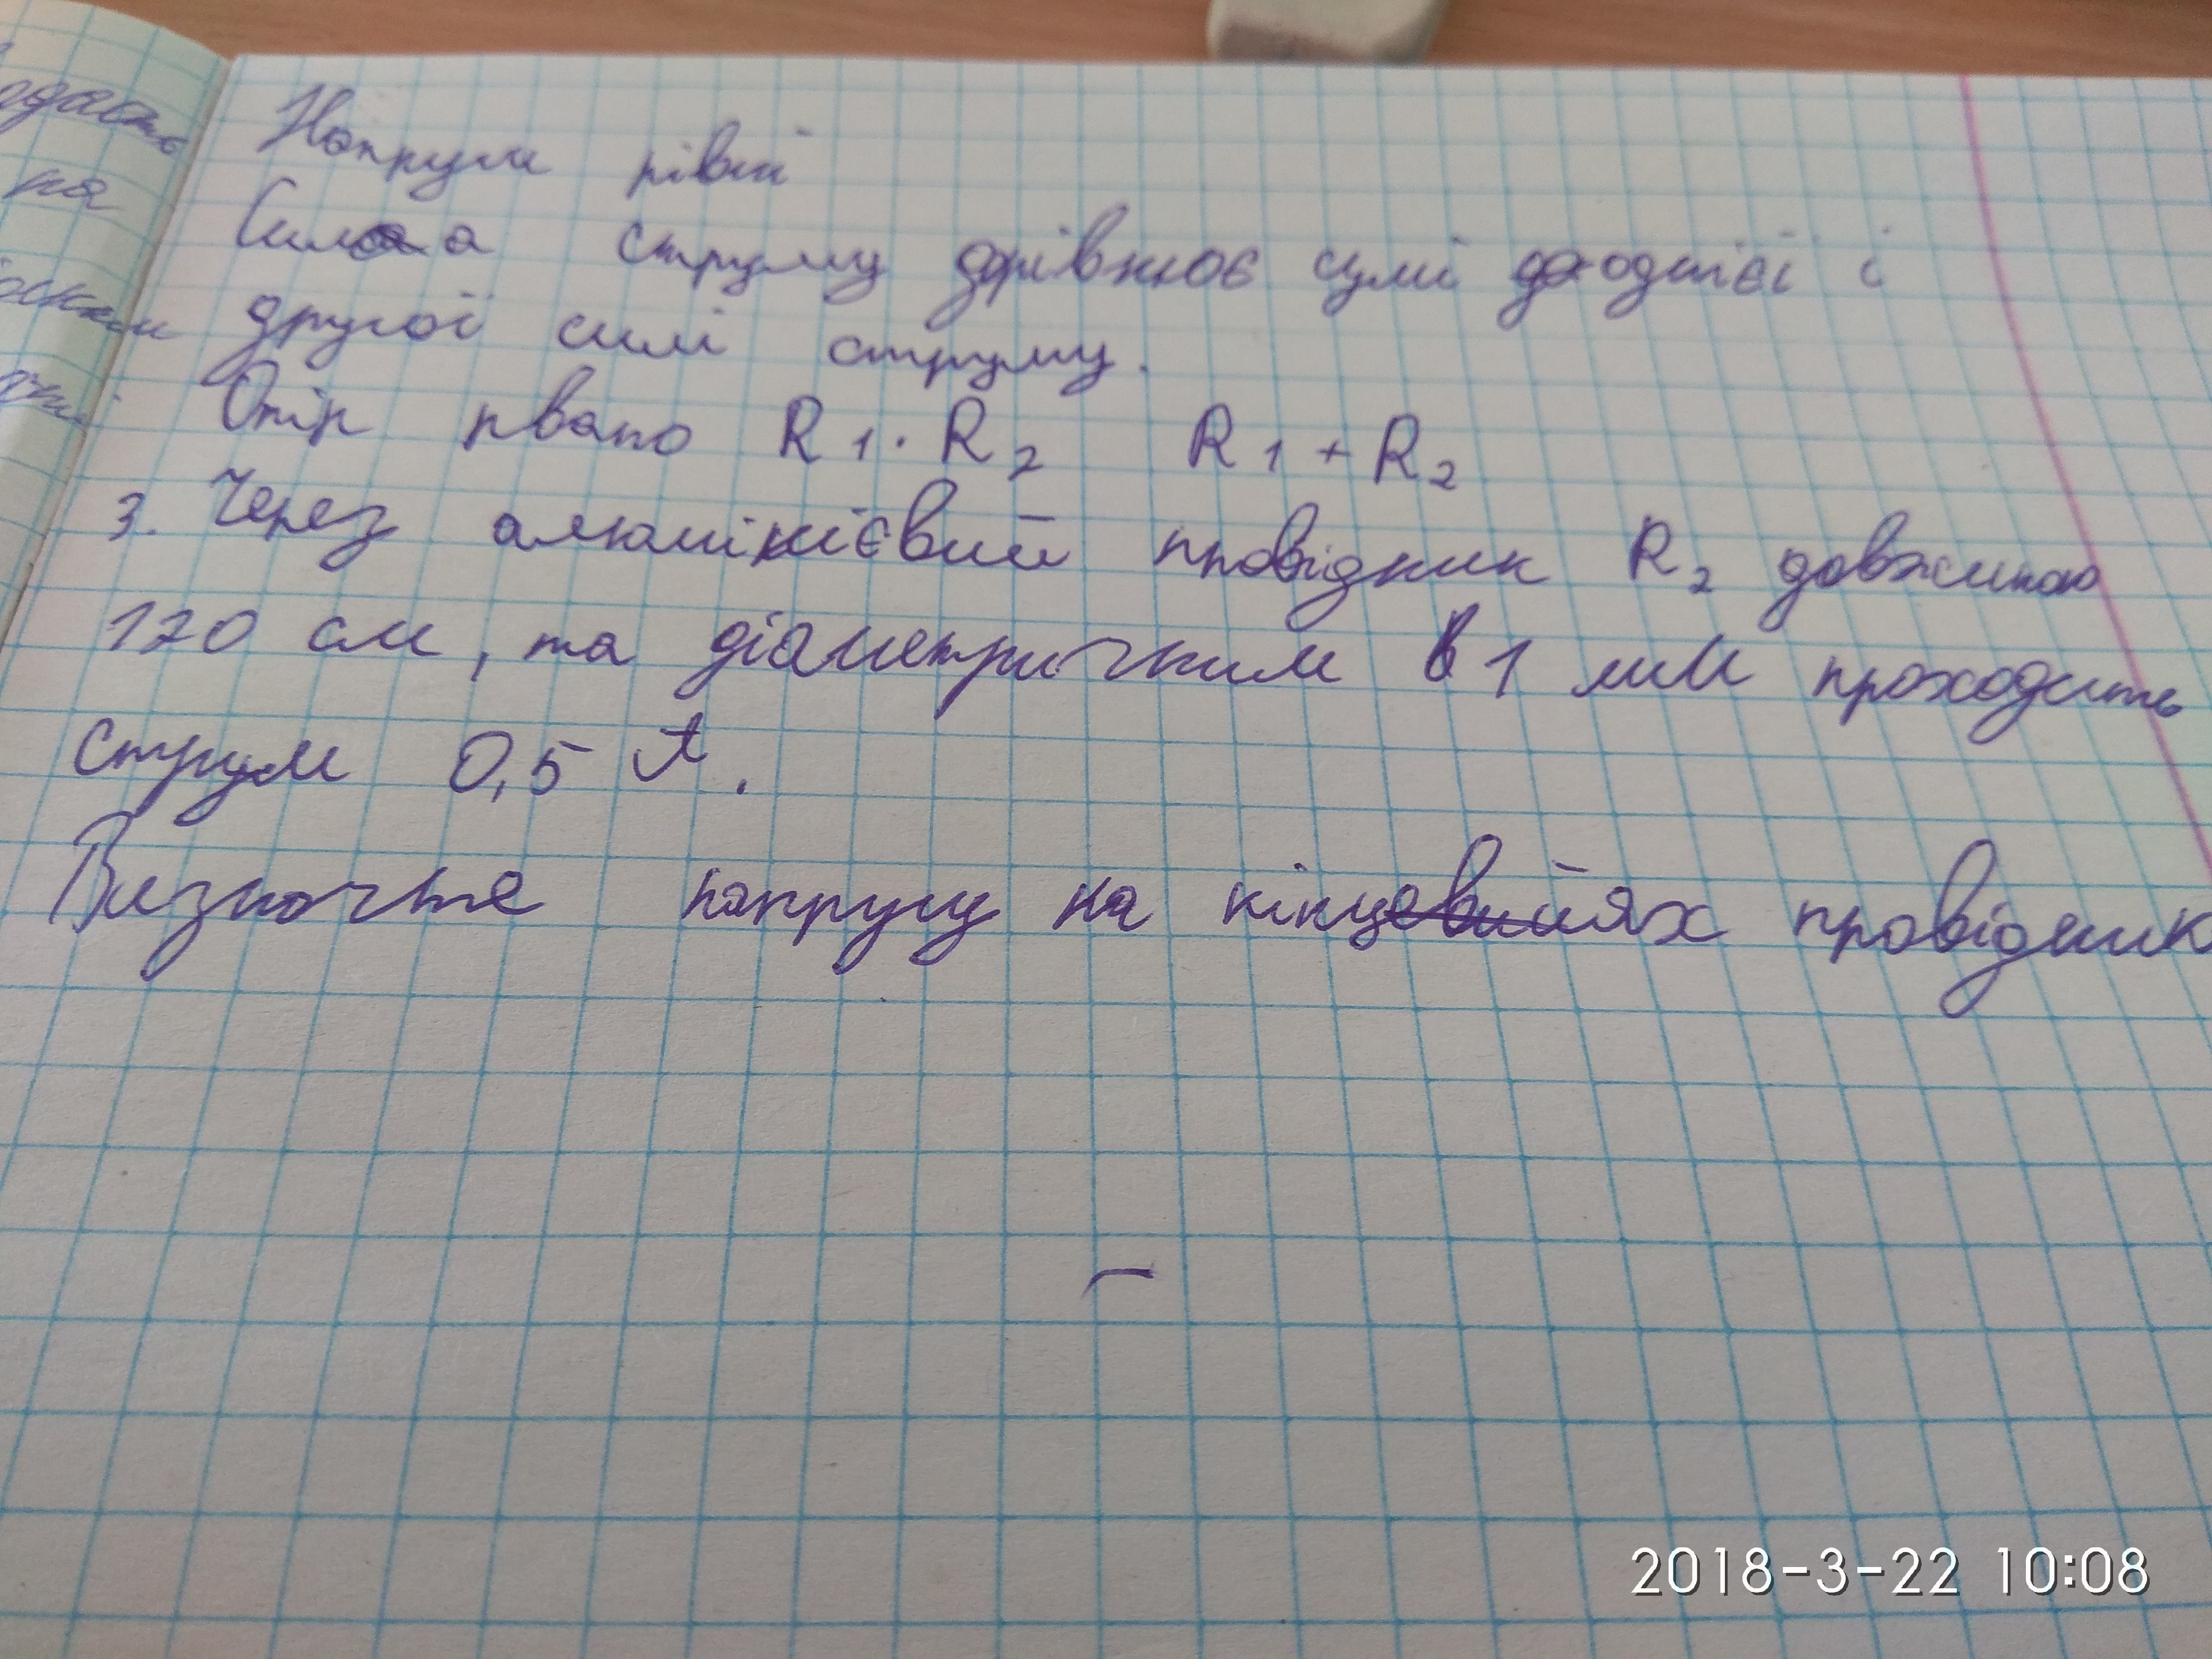 Напруги рівні
Сила струму дорівнює сумі одинієї і
другої силі струму.
Опір рвато R1 · R2 R1 + R2
3. Через алюмінієвий провідник R2 довжиною
120 см, та діаметричним в 1 мм проходить
струм 0,5 А.
Визначте напругу на кінцях провідник
одасть
на
2018-3-22 10:08